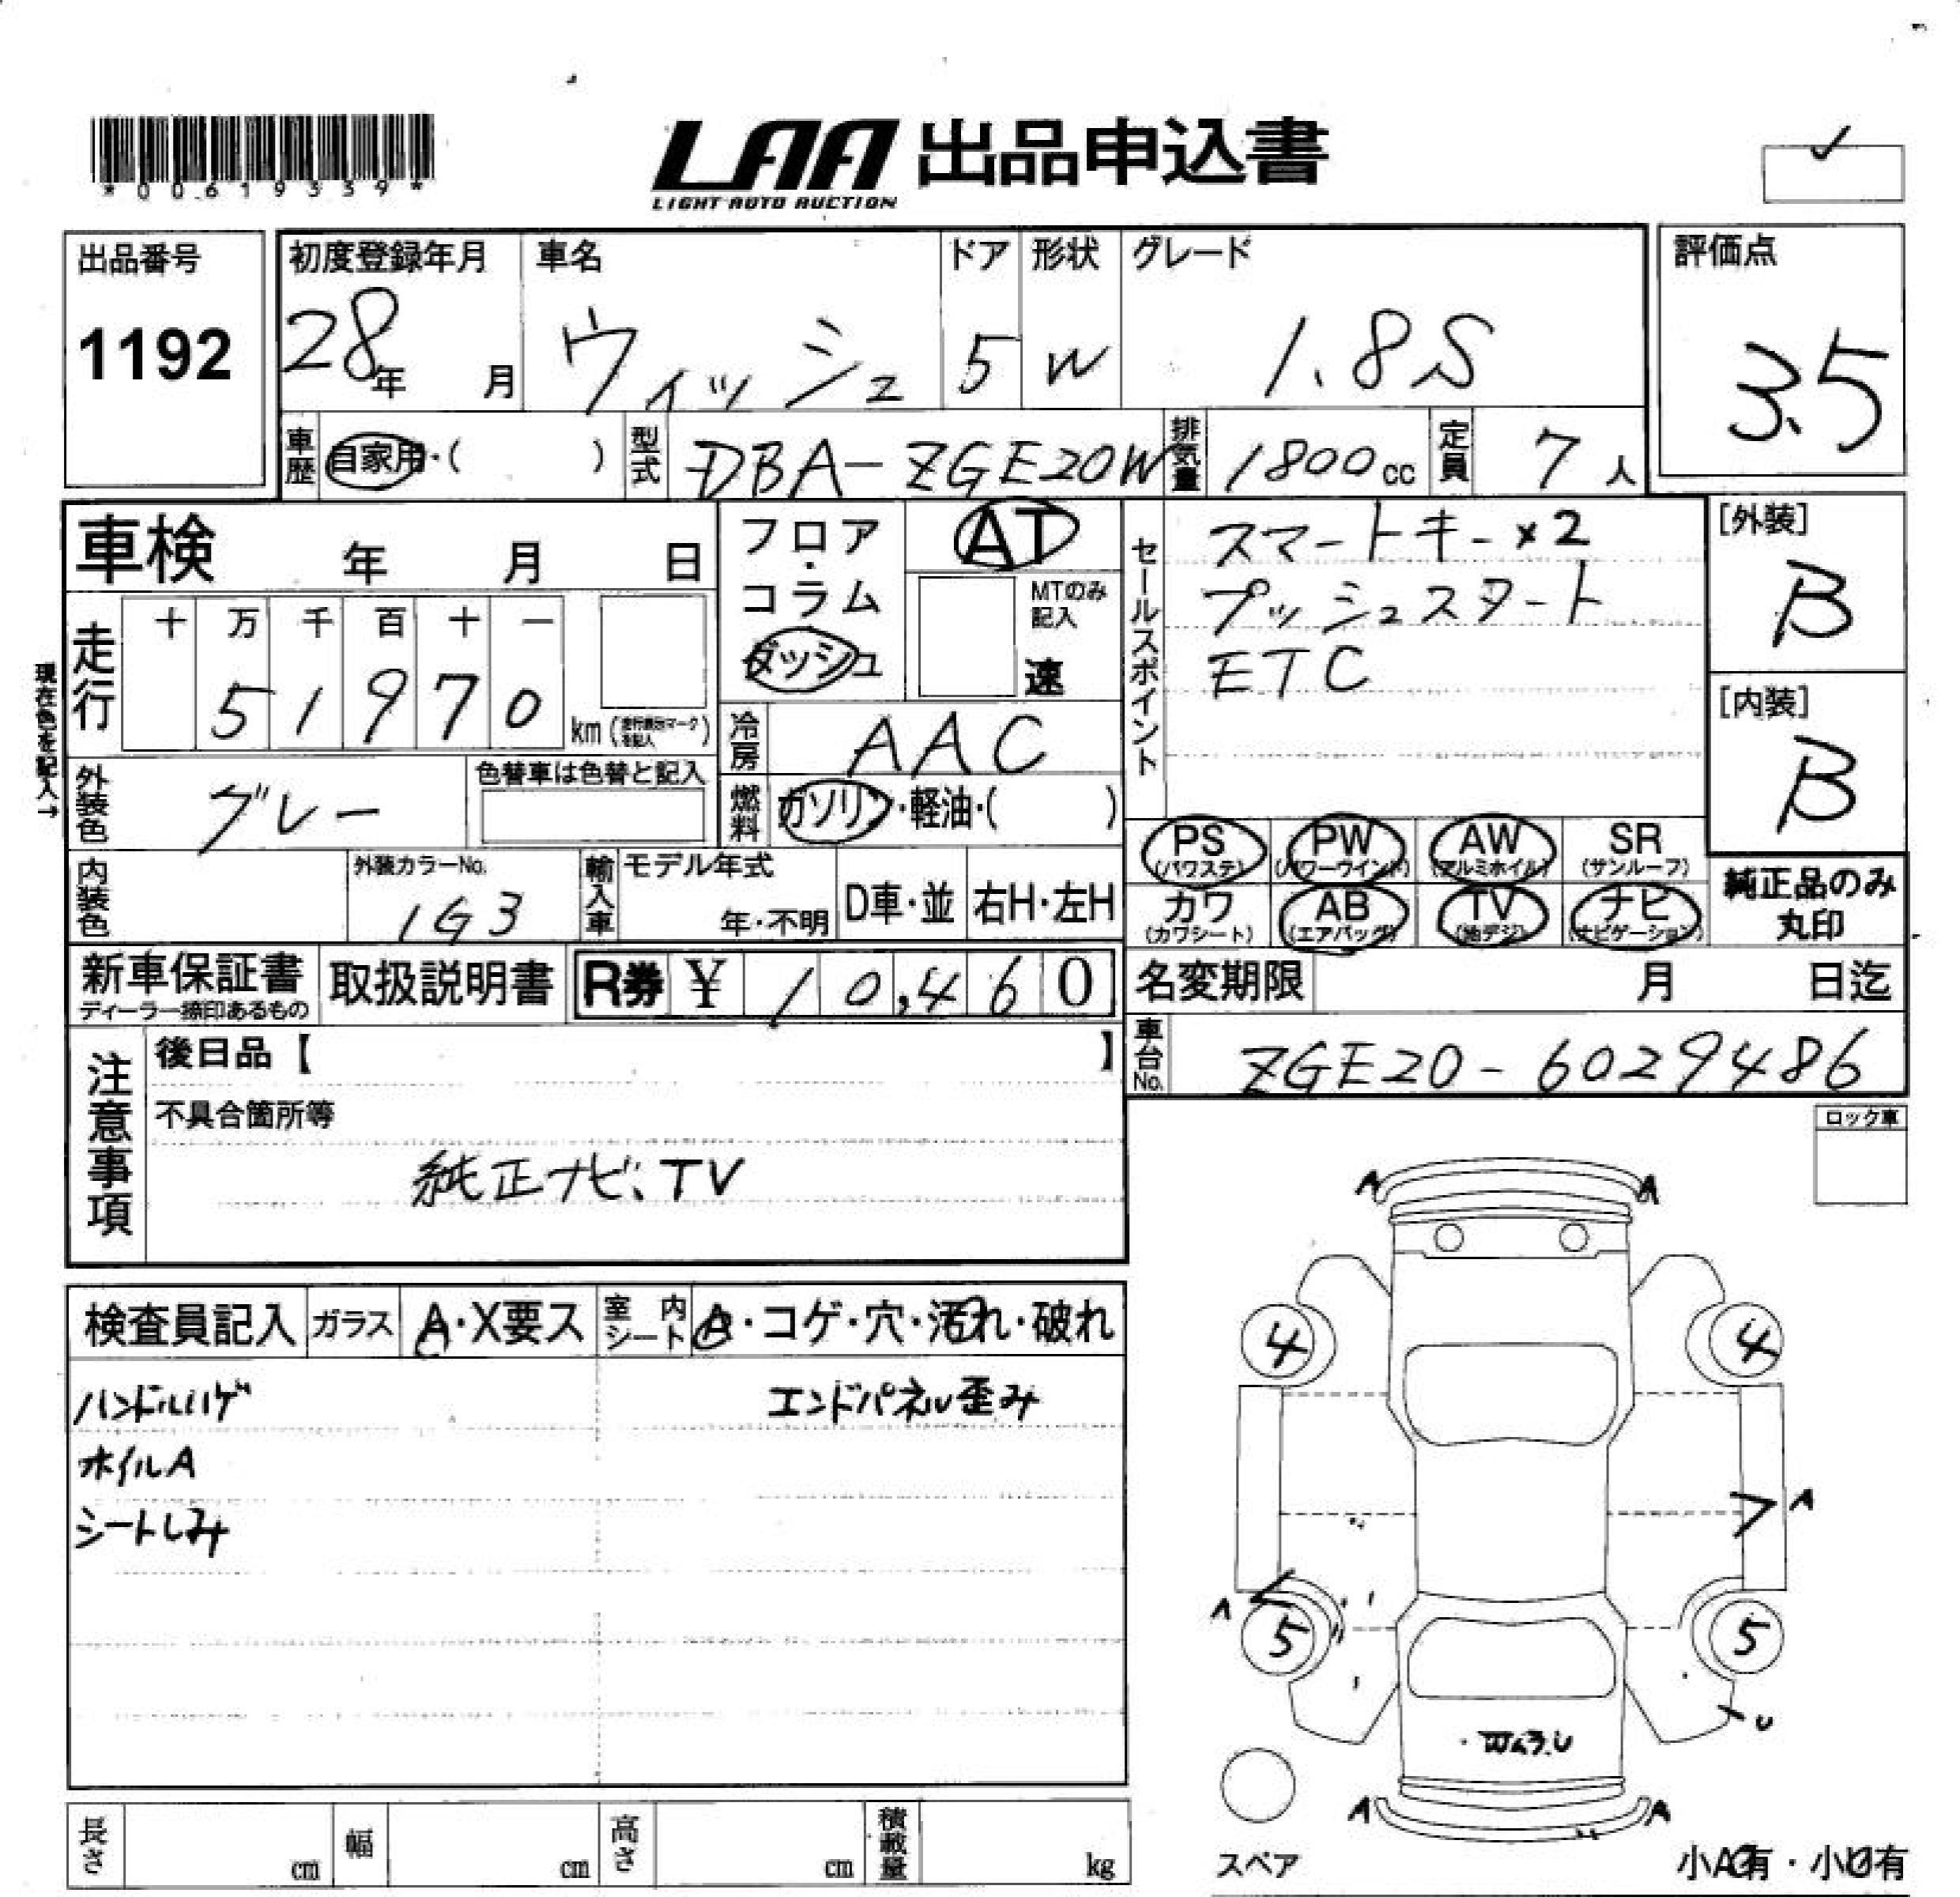 *00619339*
LAA 出品申込書
LIGHT AUTO AUCTION
出品番号
1192
初度登録年月
28年 月
車名
ウィッシュ
ドア
5
形状
W
グレード
1.8S
評価点
3.5
車歴 自家用・( )
型式 DBA-ZGE20W
排気量 1800cc
定員 7人
車検 年 月 日
フロア・コラム
ダッシュ
AT
MTのみ記入
速
セールスポイント
スマートキー×2
プッシュスタート
ETC
[外装]
B
[内装]
B
現在色を記入→
走行
十 万 千 百 十 一
5 1 9 7 0 km
冷房 AAC
外装色 グレー
色替車は色替と記入
燃料 ガソリン・軽油・( )
PS (パワステ)
PW (パワーウインド)
AW (アルミホイル)
SR (サンルーフ)
カワ (カワシート)
AB (エアバッグ)
TV (地デジ)
ナビ (ナビゲーション)
純正品のみ
丸印
内装色
外装カラーNo.
1G3
輸入車
モデル年式
年・不明
D車・並
右H・左H
新車保証書
ディーラー捺印あるもの
取扱説明書
R券 ¥ 10,460
名変期限 月 日迄
車台No. ZGE20-6029486
注意事項
後日品【 】
不具合箇所等
純正ナビ、TV
ロック車
検査員記入
ガラス A・X要ス
室内シート A・コゲ・穴・汚れ・破れ
ハンドルハゲ
エンドパネル歪み
ホイルA
シートしみ
A A
4 4
A
A
5 5
U
A A
スペア
小A有・小U有
長さ cm
幅 cm
高さ cm
積載量 kg